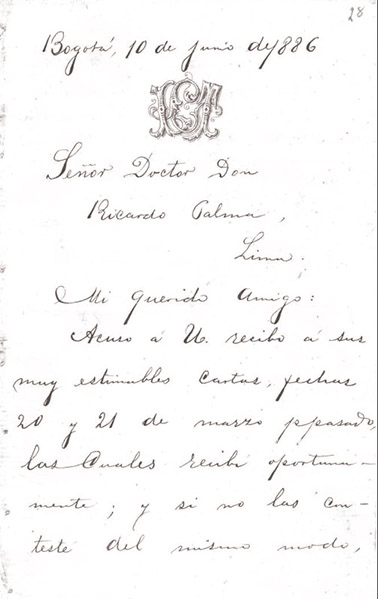 28
Bogotá, 10 de junio de 1886
Señor Doctor Don
Ricardo Palma,
Lima.
Mi querido amigo:
Acuso á U. recibo á sus
muy estimables cartas, fechas
20 y 21 de marzo ppasado,
las cuales recibí oportuna-
mente; y si no las con-
testé del mismo modo,